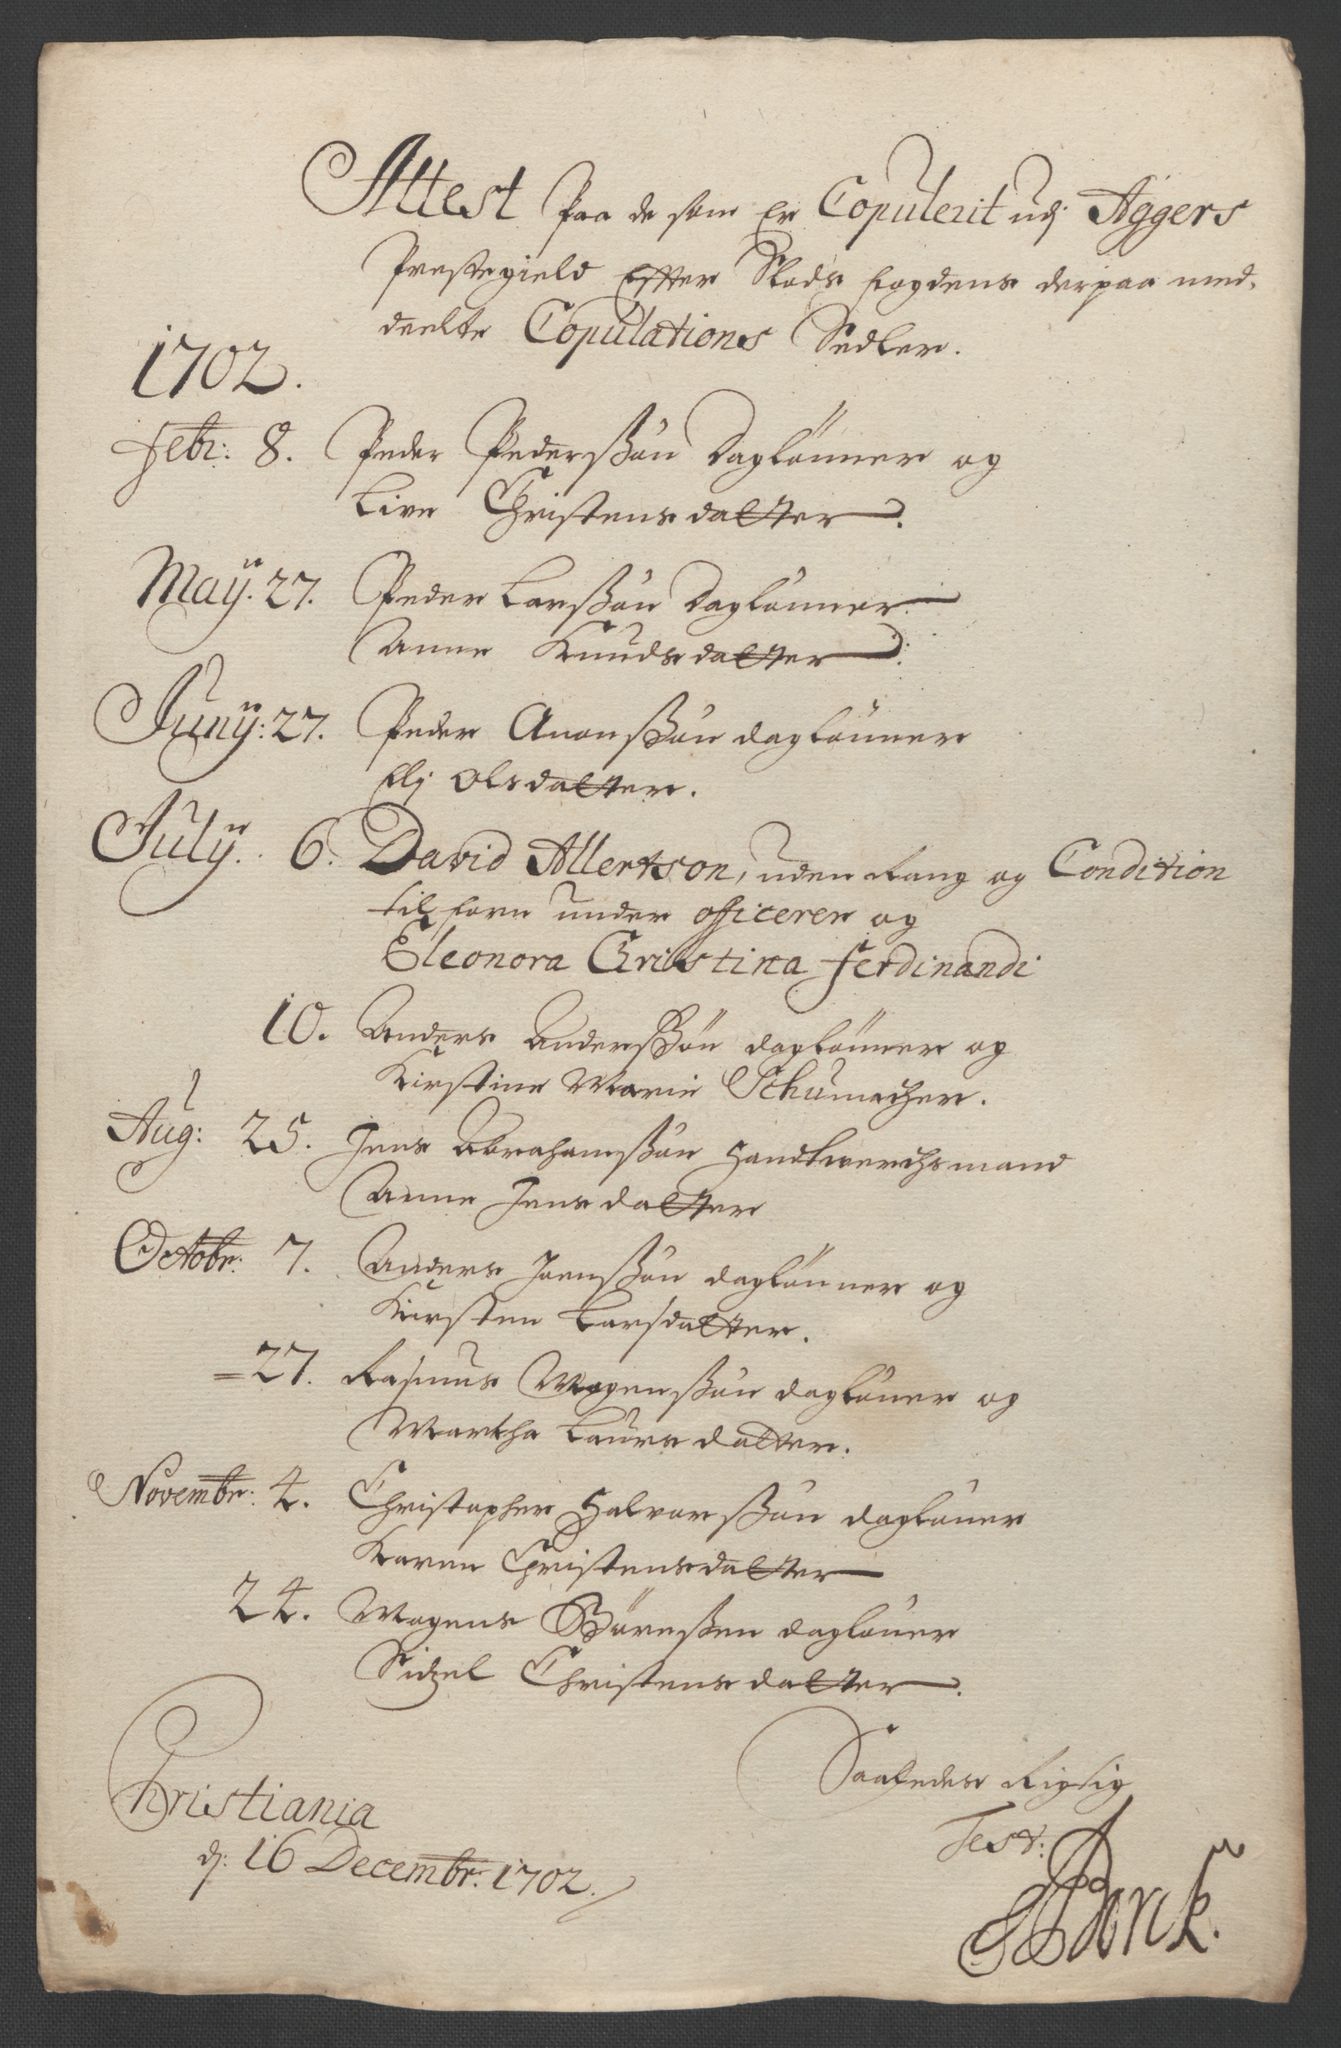 Attest paa de som Er Copulerit udj Aggers
Prestegield Effter Slods fogdens derpaa med,
deelte Copulations Sedler.
1702.
Febr: 8. Peder Pederssøn Daglønner og
Live Christensdatter.
Maÿ. 27. Peder Larssøn Daglønner.
Anne Knudsdatter.
Junÿ: 27. Peder Anonssøn daglønner
Elj Olsdatter.
Julÿ. 6. David Allertson, uden Rang og Condition
tilforn under officerer og
Eleonora Christina Ferdinandi
10. Anders Anderssøn daglønner og
Kirstine Marie Schumacher.
Aug: 25. Jens Abrahamssøn Handtwerchsmand
Anne Jensdatter
Octobr: 7. Anders Joenssøn daglønner og
Kirsten Larsdatter.
=27. Rasmus Mogenssøn dagløner og
Martha Laursdatter.
Novembr: 4. Christopher Halvorssøn dagløner
Karen Christensdatter
24. Mogens Børessen dagløner
Sidzel Christensdatter.
Saaledes Rigtig
Christiania Test:
dj: 16 Decembr: 1702.
Borck.